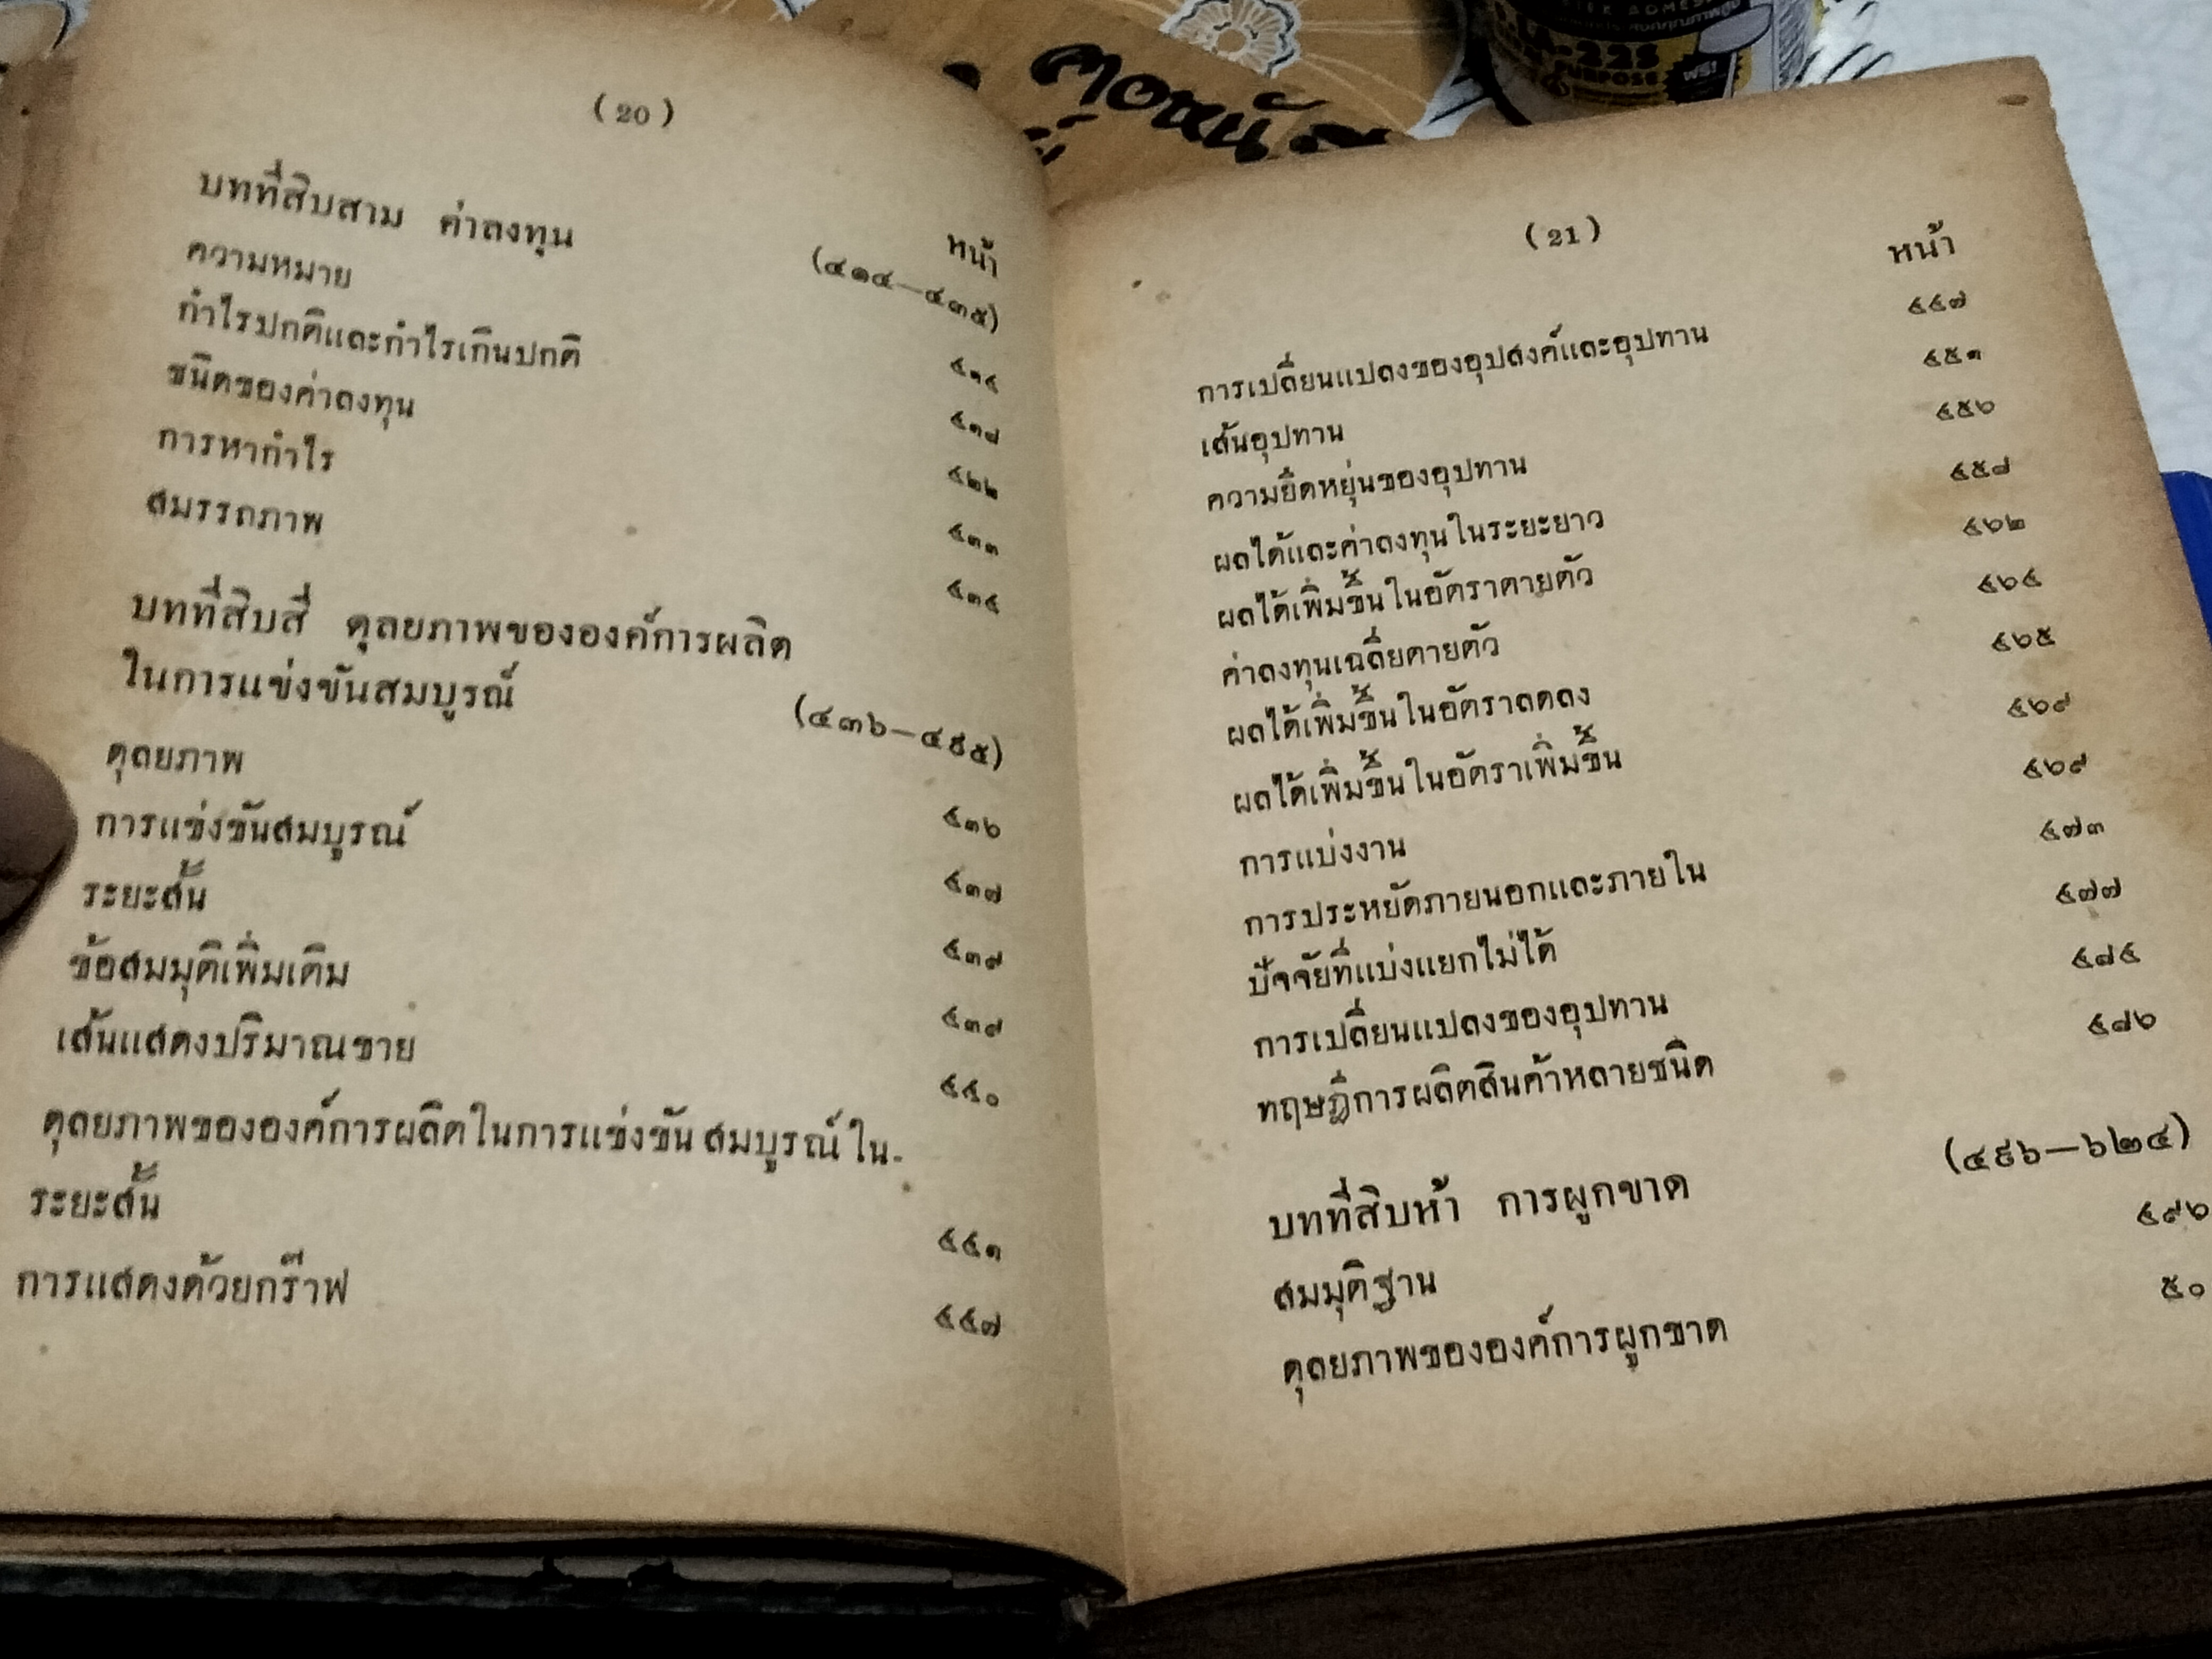 ( 20 )
หน้า
บทที่สิบสาม ค่าลงทุน (๔๑๔—๔๓๕)
ความหมาย ๔๑๔
กำไรปกติและกำไรเกินปกติ ๔๑๘
ชนิดของค่าลงทุน ๔๒๒
การหากำไร ๔๓๓
สมรรถภาพ ๔๓๔
บทที่สิบสี่ ดุลยภาพขององค์การผลิต
ในการแข่งขันสมบูรณ์ (๔๓๖—๔๙๕)
ดุลยภาพ ๔๓๖
การแข่งขันสมบูรณ์ ๔๓๗
ระยะสั้น ๔๓๙
ข้อสมมุติเพิ่มเติม ๔๓๙
เส้นแสดงปริมาณขาย ๔๔๐
ดุลยภาพขององค์การผลิตในการแข่งขันสมบูรณ์ ใน-
ระยะสั้น ๔๔๑
การแสดงด้วยกร๊าฟ ๔๔๗
( 21 )
หน้า
การเปลี่ยนแปลงของอุปสงค์และอุปทาน ๔๔๗
เส้นอุปทาน ๔๕๑
ความยืดหยุ่นของอุปทาน ๔๕๖
ผลได้และค่าลงทุนในระยะยาว ๔๕๘
ผลได้เพิ่มขึ้นในอัตราตายตัว ๔๖๒
ค่าลงทุนเฉลี่ยตายตัว ๔๖๔
ผลได้เพิ่มขึ้นในอัตราลดลง ๔๖๕
ผลได้เพิ่มขึ้นในอัตราเพิ่มขึ้น ๔๖๙
การแบ่งงาน ๔๖๙
การประหยัดภายนอกและภายใน ๔๗๓
ปัจจัยที่แบ่งแยกไม่ได้ ๔๗๗
การเปลี่ยนแปลงของอุปทาน ๔๘๔
ทฤษฎีการผลิตสินค้าหลายชนิด ๔๘๖
บทที่สิบห้า การผูกขาด (๔๙๖—๖๒๔)
สมมุติฐาน ๔๙๖
ดุลยภาพขององค์การผูกขาด ๕๐